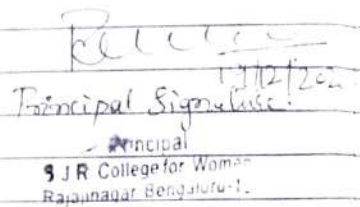 Principal Signature.
Principal
S J R College for Women
Rajajinagar Bengaluru-1